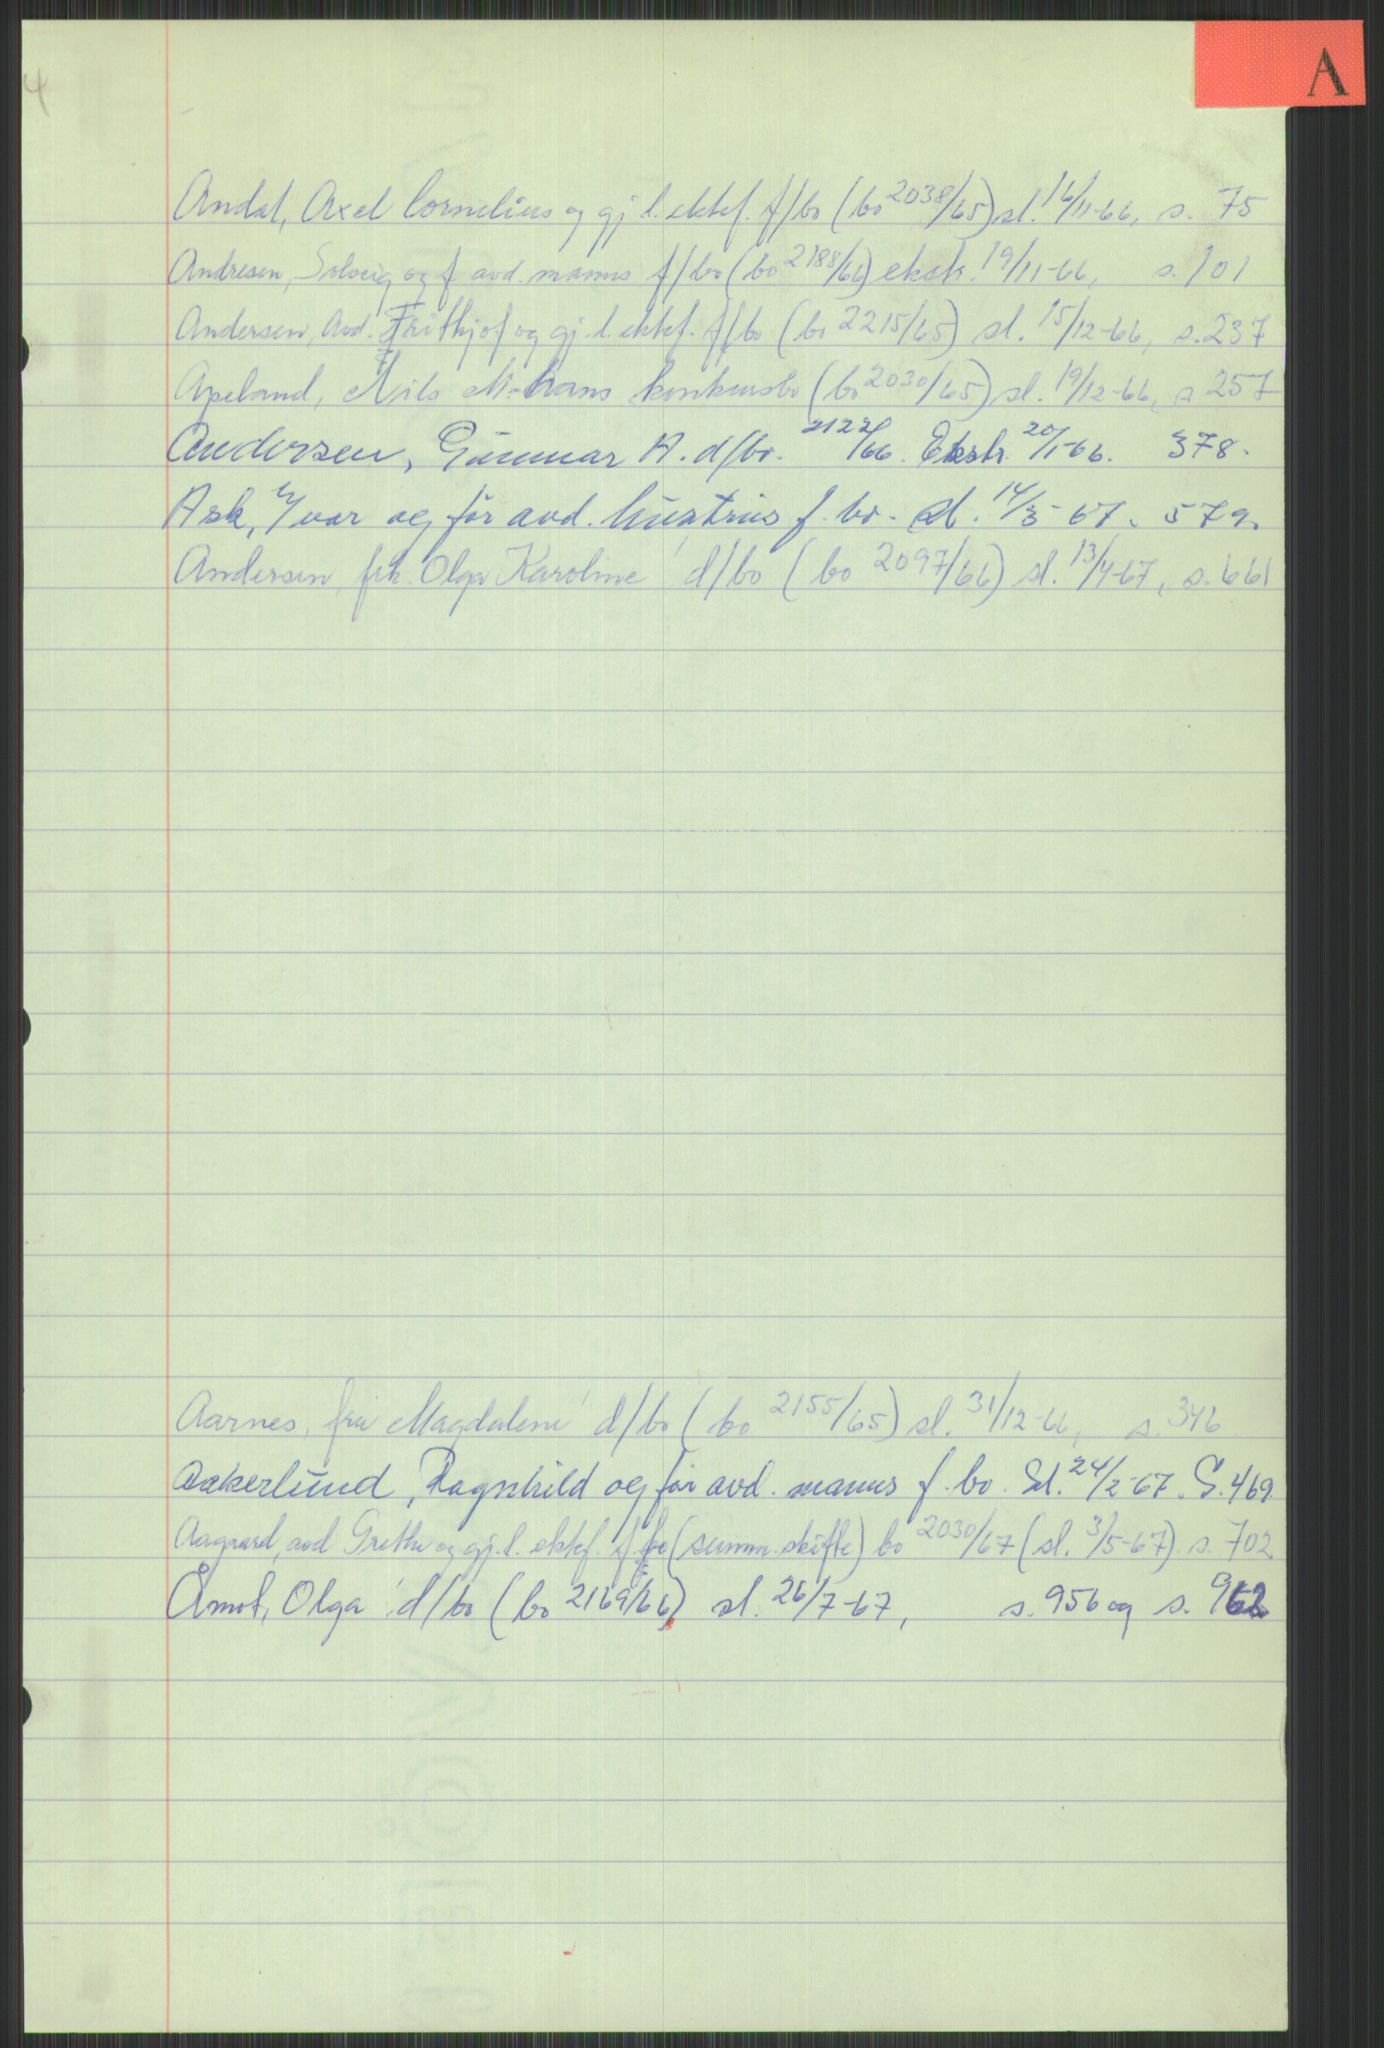 4
A
Andal, Axel Cornelius og gj.l. ektef. f/bo (bo 2038/65) sl. 16/11-66, s. 75
Andresen, Solveig og f avd. manns f/bo (bo 2188/66) ekstr. 19/11-66, s. 101
Andersen, Avd. Frithjof og gj.l. ektef. f/bo (bo 2215/65) sl. 15/12-66, s. 237
Apeland, Nils M. Hans konkursbo (bo 2030/65) sl. 19/12-66, s 257
Andersen, Gunnar A. d/bo. 2122/66. Ekstr. 20/1-66. 378.
Ask, Yvar og før avd. hustrus f. bo. sl. 14/3-67. 579.
Andersen, frk. Olga Karoline d/bo (bo 2097/66) sl. 13/4-67, s. 661
Aarnes, fru Magdalene d/bo (bo 2155/65) sl. 31/12-66, s. 346
Aakerlund, Ragnhild og før avd. manns f. bo. Sl. 24/2-67. S. 469
Aagaard, avd Grethe og gj.l. ektef. f.bo (summ. skifte) bo 2030/67 (sl. 3/5-67). s. 702
Åmot, Olga d/bo (bo 2169/66) sl. 26/7-67, s. 956 og s. 962